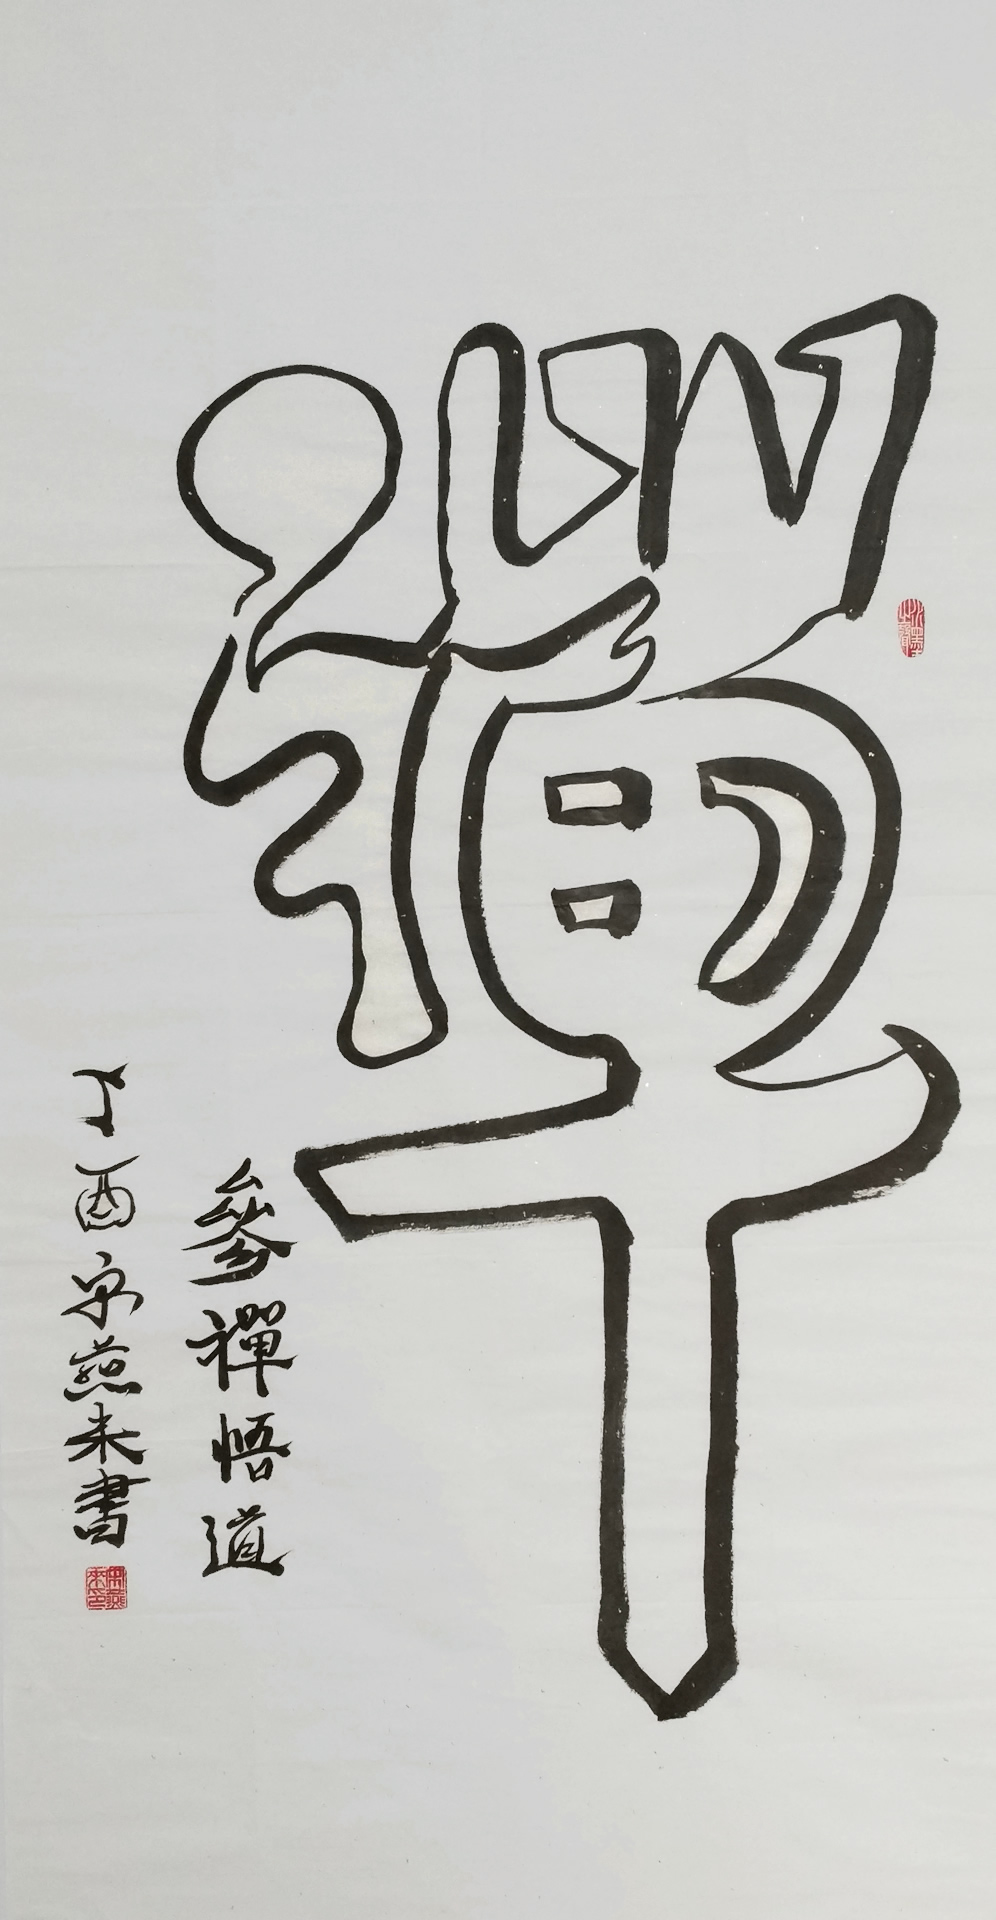 禪
參禪悟道
丁酉宋燕来書